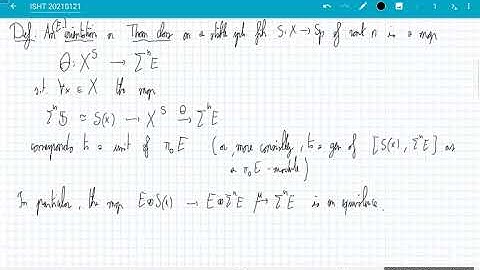 ISHT 20210121
Def. An [E-] orientation or Thom class on a stable sph. fib. S: X → Sp of rank n is a map
Θ: X^S → Σ^n E
s.t. ∀x ∈ X the map
Σ^n 𝕊 ≃ S(x) → X^S →^Θ Σ^n E
corresponds to a unit of π_0 E (or, more canonically, to a gen of [S(x), Σ^n E] as
a π_0 E-module)
In particular, the map E⊗S(x) → E⊗Σ^n E →^μ Σ^n E is an equivalence.